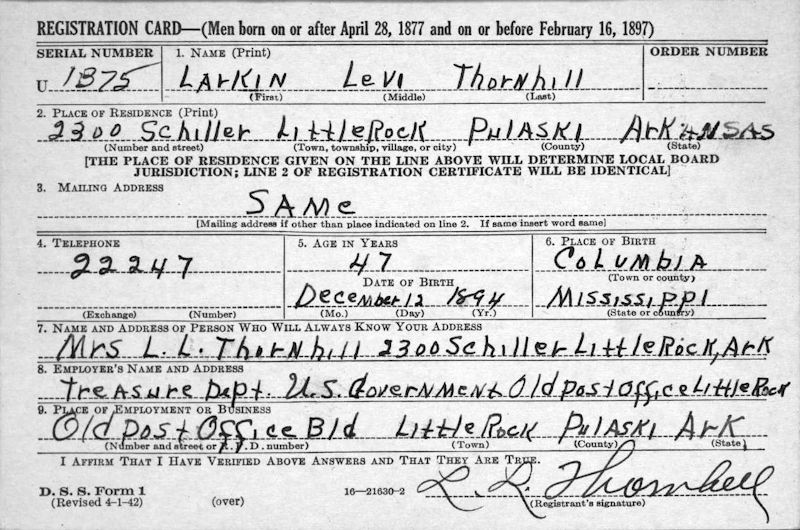 REGISTRATION CARD—(Men born on or after April 28, 1877 and on or before February 16, 1897)
SERIAL NUMBER 1. NAME (Print) ORDER NUMBER
U 1875 LArKIN LeVI ThorNhill
(First) (Middle) (Last)
2. PLACE OF RESIDENCE (Print)
2300 Schiller LittleRock PULASKI ArKANSAS
(Number and street) (Town, township, village, or city) (County) (State)
[THE PLACE OF RESIDENCE GIVEN ON THE LINE ABOVE WILL DETERMINE LOCAL BOARD
JURISDICTION; LINE 2 OF REGISTRATION CERTIFICATE WILL BE IDENTICAL]
3. MAILING ADDRESS
SAMe
[Mailing address if other than place indicated on line 2. If same insert word same]
4. TELEPHONE 5. AGE IN YEARS 6. PLACE OF BIRTH
22247 47 CoLUMBIA
(Town or county)
DATE OF BIRTH
December 12 1894 MISSISSIPPI
(Exchange) (Number) (Mo.) (Day) (Yr.) (State or country)
7. NAME AND ADDRESS OF PERSON WHO WILL ALWAYS KNOW YOUR ADDRESS
Mrs L. L. ThorNhill 2300 Schiller LittleRock, ArK
8. EMPLOYER'S NAME AND ADDRESS
TreASure Dept U.S. GoverNMeNt Old post office LittleRock
9. PLACE OF EMPLOYMENT OR BUSINESS
Old post OFFice Bld LittleRock PULASKI ArK
(Number and street or R. F. D. number) (Town) (County) (State)
I AFFIRM THAT I HAVE VERIFIED ABOVE ANSWERS AND THAT THEY ARE TRUE.
D. S. S. Form 1
(Revised 4-1-42) (over) 16—21630-2 L. L. Thornhill
(Registrant's signature)